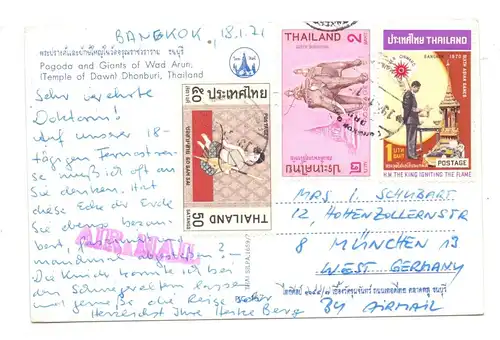 BANGKOK, 18.1.71
พระปรางค์และยักษ์ใหญ่ในวัดอรุณราชวราราม ธนบุรี
Pagoda and Giants of Wad Arun,
(Temple of Dawn) Dhonburi, Thailand
Sehr geehrte
Doktorin!
Auf unserer 18-
tägigen Fernostrei-
se muß ich oft an
Sie denken. Hat
diese Ecke die Erde
Sie ebenso bezau-
bert,
manchmal abgestoßen? –
Die Knick konnte ich bei
den lassen
und genieße die Reise sehr
Herzlichst Ihre Heike Berg
AIR MAIL
ประเทศไทย
50
THAILAND
50
SATANGS
THAILAND
2
BAHT
ประเทศไทย
๒
ประเทศไทย THAILAND
BANGKOK 1970
SIXTH ASIAN GAMES
1 บาท
BAHT
POSTAGE
H.M THE KING IGNITING THE FLAME
MRS I. SCHUBART
12, HOHENZOLLERNSTR
8 MÜNCHEN 13
WEST GERMANY
BY AIRMAIL